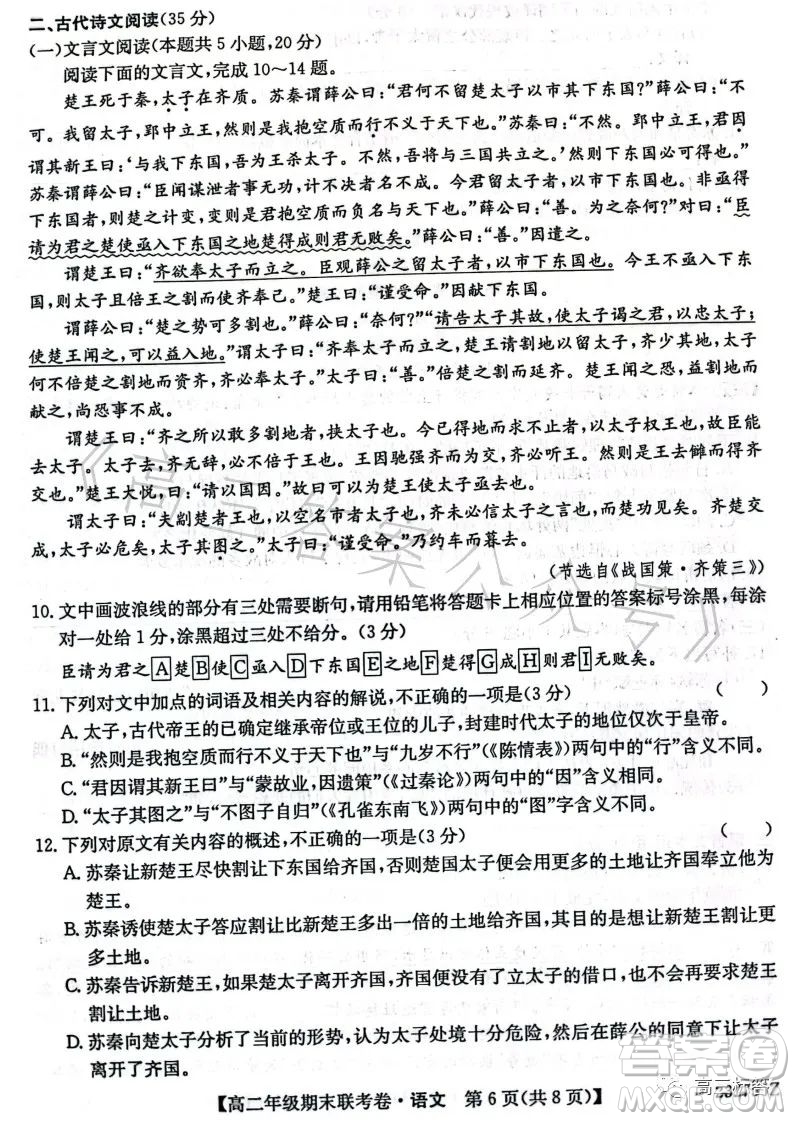 二、古代诗文阅读(35 分)
(一)文言文阅读(本题共 5 小题,20 分)
阅读下面的文言文,完成 10～14 题。
楚王死于秦,太子在齐质。苏秦谓薛公曰:“君何不留楚太子以市其下东国?”薛公曰:“不
可。我留太子,郢中立王,然则是我抱空质而行不义于天下也。”苏秦曰:“不然。郢中立王,君因
谓其新王曰:‘与我下东国,吾为王杀太子。不然,吾将与三国共立之。’然则下东国必可得也。”
苏秦谓薛公曰:“臣闻谋泄者事无功,计不决者名不成。今君留太子者,以市下东国也。非亟得
下东国者,则楚之计变,变则是君抱空质而负名与天下也。”薛公曰:“善。为之奈何?”对曰:“臣
请为君之楚使亟入下东国之地楚得成则君无败矣。”薛公曰:“善。”因遣之。
谓楚王曰:“齐欲奉太子而立之。臣观薛公之留太子者,以市下东国也。今王不亟入下东
国,则太子且倍王之割而使齐奉己。”楚王曰:“谨受命。”因献下东国。
谓薛公曰:“楚之势可多割也。”薛公曰:“奈何?”“请告太子其故,使太子谒之君,以忠太子;
使楚王闻之,可以益入地。”谓太子曰:“齐奉太子而立之,楚王请割地以留太子,齐少其地。太子
何不倍楚之割地而资齐,齐必奉太子。”太子曰:“善。”倍楚之割而延齐。楚王闻之恐,益割地而
献之,尚恐事不成。
谓楚王曰:“齐之所以敢多割地者,挟太子也。今已得地而求不止者,以太子权王也,故臣能
去太子。太子去,齐无辞,必不倍于王也。王因驰强齐而为交,齐必听王。然则是王去雠而得齐
交也。”楚王大悦,曰:“请以国因。”故曰可以为楚王使太子亟去也。
谓太子曰:“夫剬楚者王也,以空名市者太子也,齐未必信太子之言也,而楚功见矣。齐楚交
成,太子必危矣,太子其图之。”太子曰:“谨受命。”乃约车而暮去。
(节选自《战国策·齐策三》)
10. 文中画波浪线的部分有三处需要断句,请用铅笔将答题卡上相应位置的答案标号涂黑,每涂
对一处给 1 分,涂黑超过三处不给分。(3 分)
臣请为君之A楚B使C亟入D下东国E之地F楚G得H成I则君J无败矣。
11. 下列对文中加点的词语及相关内容的解说,不正确的一项是(3 分) ( )
A. 太子,古代帝王的已确定继承帝位或王位的儿子,封建时代太子的地位仅次于皇帝。
B. “然则是我抱空质而行不义于天下也”与“九岁不行”(《陈情表》)两句中的“行”含义不同。
C. “君因谓其新王曰”与“蒙故业,因遗策”(《过秦论》)两句中的“因”含义不同。
D. “太子其图之”与“不图子自归”(《孔雀东南飞》)两句中的“图”字含义不同。
12. 下列对原文有关内容的概述,不正确的一项是(3 分) ( )
A. 苏秦让新楚王尽快割让下东国给齐国,他借口楚国太子会割让更多土地让齐国奉立他为
楚王。
B. 苏秦诱使楚太子答应割让比新楚王多出一倍的土地给齐国,其目的是想让新楚王割让更
多土地。
C. 苏秦告诉新楚王,如果楚太子离开齐国,齐国便没有了立太子的借口,也不会再要求楚王
割让土地。
D. 苏秦向楚太子分析了当前的形势,认为太子处境十分危险,然后在薛公的同意下让太子
离开了齐国。
【高二年级期末联考卷·语文 第 6 页(共 8 页)】
《高三答案公众号》
答案圈